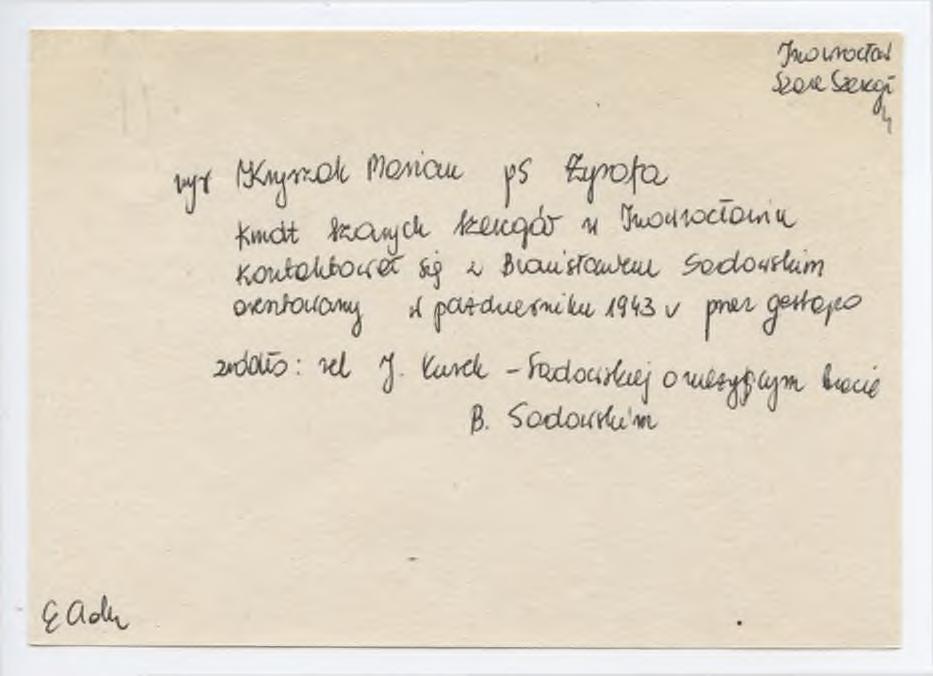 Inowrocław
Szare Szeregi
wyr Kryszak Marian ps Żyrafa
Kmdt Szarych Szeregów w Inowrocławiu
Kontaktował się z Bronisławem Sadowskim
aresztowany w październiku 1943 r przez gestapo
źródło: rel J. Kurek - Sadowskiej o nieżyjącym bracie
B. Sadowskim